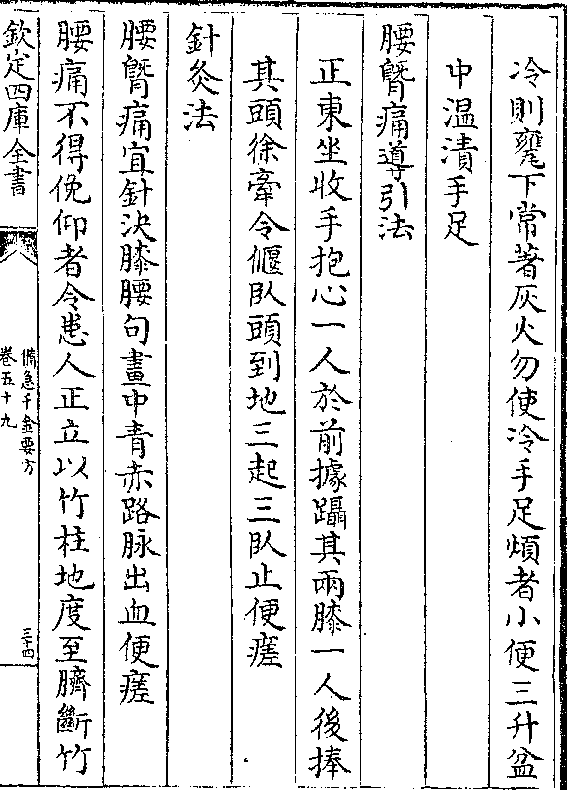 冷則甕下常著灰火勿使冷手足煩者小便三升盆
中温漬手足
腰臀痛導引法
正東坐收手抱心一人於前據躡其兩膝一人後捧
其頭徐牽令偃卧頭到地三起三卧止便瘥
針灸法
腰臀痛宜針決膝腰句畫中青赤路脉出血便瘥
腰痛不得俛仰者令患人正立以竹柱地度至臍斷竹
欽定四庫全書
備急千金要方
卷五十九
三十四